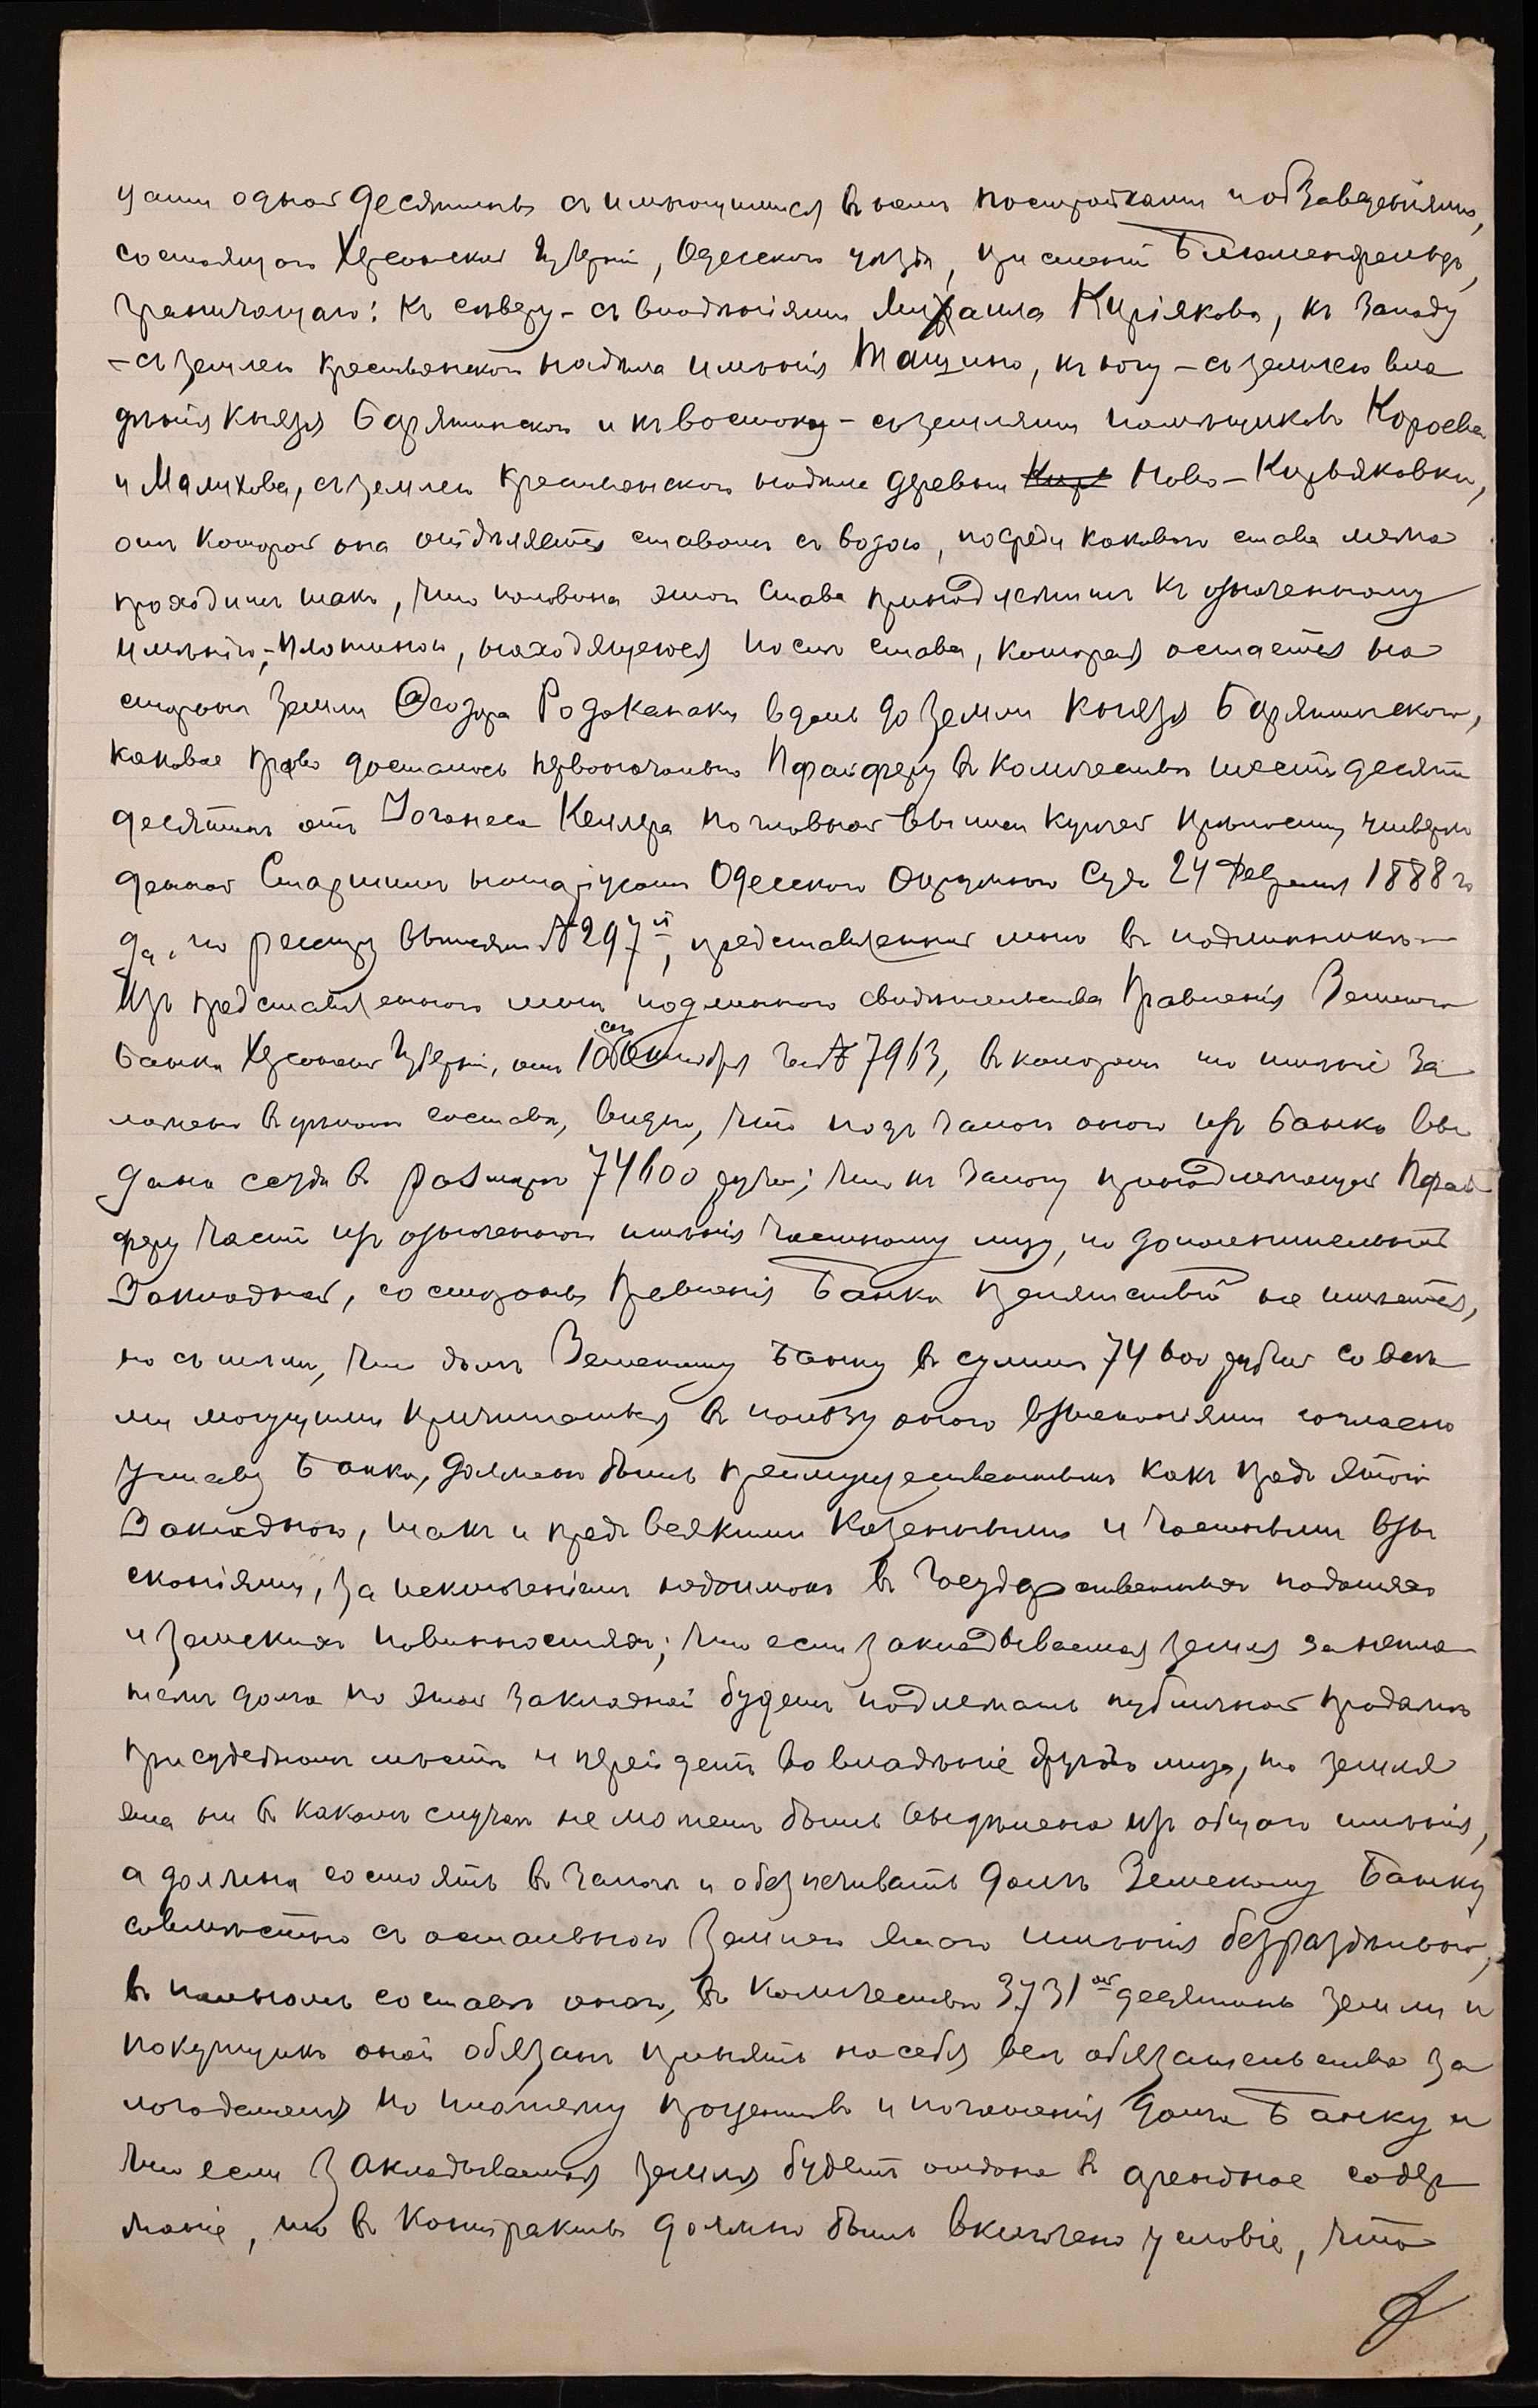 цати одной десятинъ съ имѣющимися въ немъ постройками и обзаведеніями,
состоящаго Херсонской губерніи, Одесскаго уѣзда, при селеніи Блюменфельдъ,
граничащаго: къ сѣверу – съ владѣніями Михаила Курíякова, къ западу
– съ землею крестьянскаго надѣла имѣнія Ташино, къ югу – съ землею вла
дѣнія Князя Барятинскаго и къ востоку – съ землями помѣщиковъ Короева
и Малихова, съ землею крестьянскаго надѣла деревни Ново – Курьяковки,
отъ которой она отдѣляется ставомъ съ водою, посреди каковаго става межа
проходитъ такъ, что половина этого става принадлежитъ къ означенному
имѣнію, плотиною, находящеюся послѣ става, которая остается на
сторонѣ земли Ѳеодора Родоканаки вдоль до земли Князя Барятинскаго,
каковое право досталось первоначально Пфайферу въ количествѣ шестидесяти
десятинъ отъ Іоганеса Келлера по главной выписи купчей крѣпости, утверж
денной Старшимъ нотаріусомъ Одесскаго Окружнаго Суда 24 Февраля 1888 го
да, по реестру выписи № 297й, представленной мнѣ въ подлинникѣ. –
Изъ представленнаго мнѣ подлиннаго свидѣтельства Правленія Земскаго
Банка Херсонской Губерніи, отъ 10 сего Октября за № 7963, въ которомъ то имѣніе за
ложено въ цѣломъ составѣ, видно, что подъ залогъ онаго изъ Банка вы
дана ссуда въ размѣрѣ 74600 рублей; что къ залогу принадлежащей Пфай
феру части изъ означеннаго имѣнія частному лицу, по дополнительной
Закладной, со стороны Правленія Банка препятствій не имѣется,
но съ тѣмъ, что долгъ Земскому Банку въ суммѣ 74600 рублей со всѣ
ми могущими причитаться въ пользу онаго взысканіями согласно
Уставу Банка, долженъ быть преимущественнымъ какъ предъ этою
Закладною, такъ и предъ всякими казенными и частными взы
сканіями, за исключеніемъ недоимокъ въ Государственныхъ податяхъ
и земскихъ повинностяхъ; что если закладываемая земля за непла
тежъ долга по этой закладной будетъ подлежать публичной продажѣ
при судебномъ мѣстѣ и перейдетъ во владѣніе другаго лица, то земля
эта ни въ какомъ случаѣ не можетъ быть выдѣлена изъ общаго имѣнія,
а должна состоять въ залогѣ и обезпечивать долгъ Земскому Банку
совмѣстно съ остальною землею этого имѣнія безраздѣльно,
въ полномъ составѣ онаго, въ количествѣ 3731ой десятинъ земли и
покупщикъ оной обязанъ принять на себя всѣ обязательства за
логодателя по платежу процентовъ и погашенія долга Банку и
что если закладываемая земля будетъ отдана въ арендное содер
жаніе, то въ контрактъ должно быть включено условіе, что